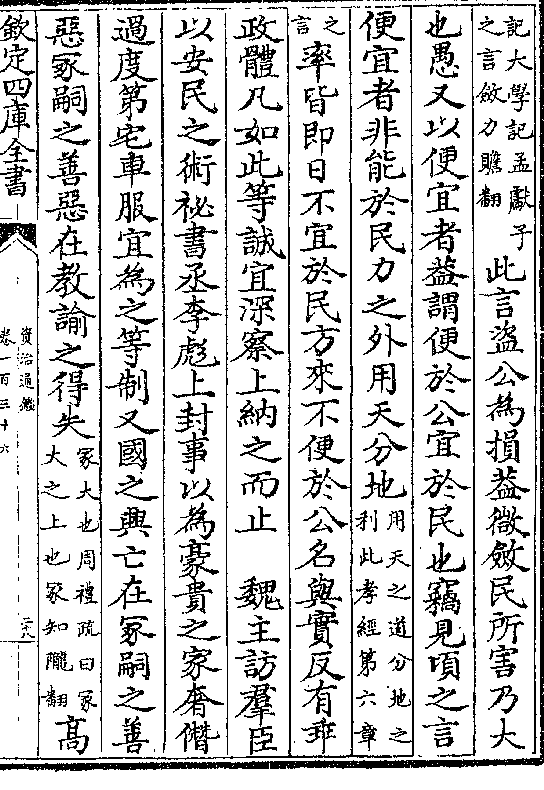 記大學記孟獻子
之言斂力贍翻
此言盜公為損葢微斂民所害乃大
也愚又以便宜者葢謂便於公宜於民也竊見頃之言
便宜者非能於民力之外用天分地
用天之道分地之
利此孝經第六章
之
言
率皆即日不宜於民方來不便於公名與實反有乖
政體凡如此等誠宜深察上納之而止　魏主訪羣臣
以安民之術祕書丞李彪上封事以為豪貴之家奢僭
過度第宅車服宜為之等制又國之興亡在冢嗣之善
惡冢嗣之善惡在教諭之得失
冢大也周禮疏曰冢
大之上也冢知隴翻
高
欽定四庫全書
資治通鑑
卷一百三十六